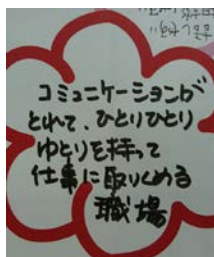 コミュニケーションが
とれて、ひとりひとり
ゆとりを持って
仕事に取りくめる
職場